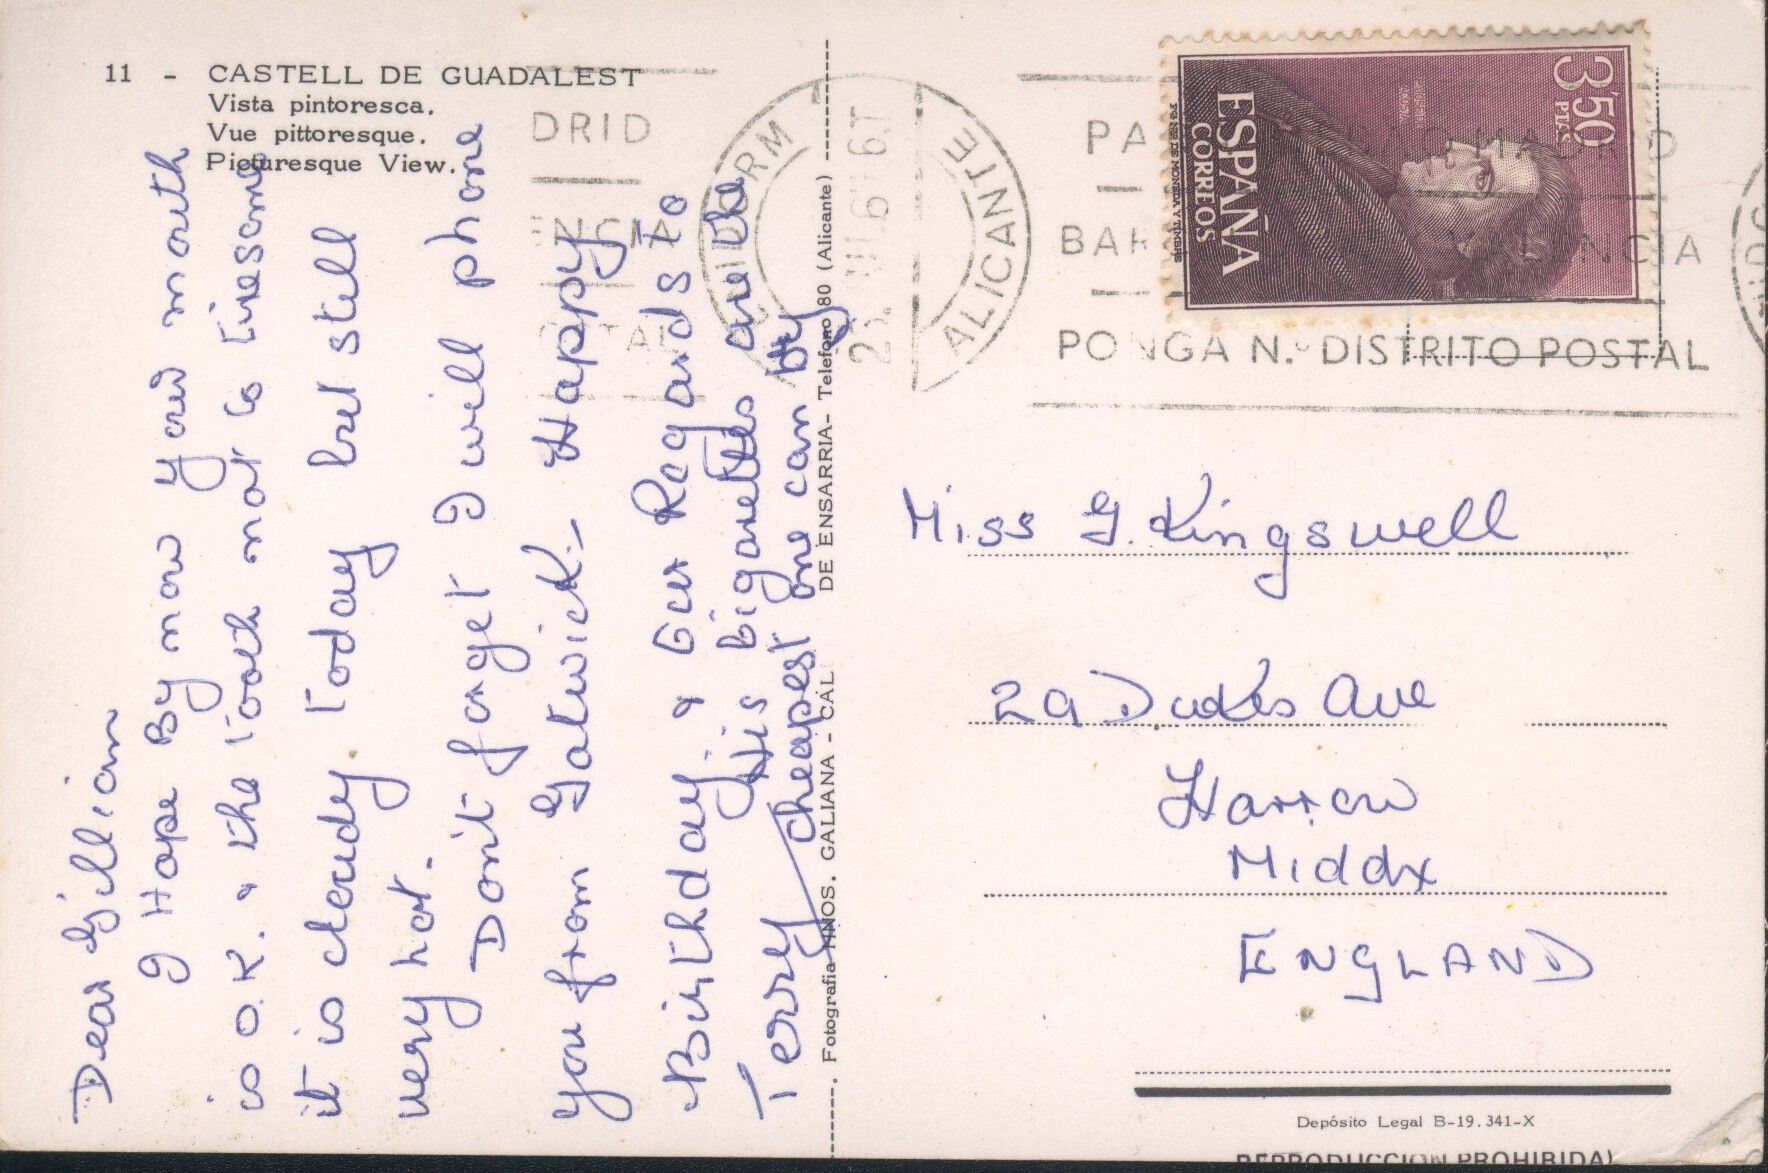 11 - CASTELL DE GUADALEST
Vista pintoresca.
Vue pittoresque.
Picturesque View.
Dear Gillian
I Hope By now your mouth
is O.K. & the tooth not to tiresome
it is cloudy. Today but still
very hot.
Don't forget I will phone
you from Gatwick. - Happy
Birthday, & Our Regards to
Terry, His Cigarettes are the
cheapest one can by
Fotografia HNOS. GALIANA - CAL DE ENSARRIA - Telefono 80 (Alicante)
DRID
ENCIA
BENIDORM
ALICANTE
PONGA N.º DISTRITO POSTAL
3'50 PTAS
ESPAÑA
CORREOS
Miss G. Kingswell
29 Dukes Ave
Harrow
Middx
ENGLAND
Depósito Legal B-19.341-X
REPRODUCCION PROHIBIDA